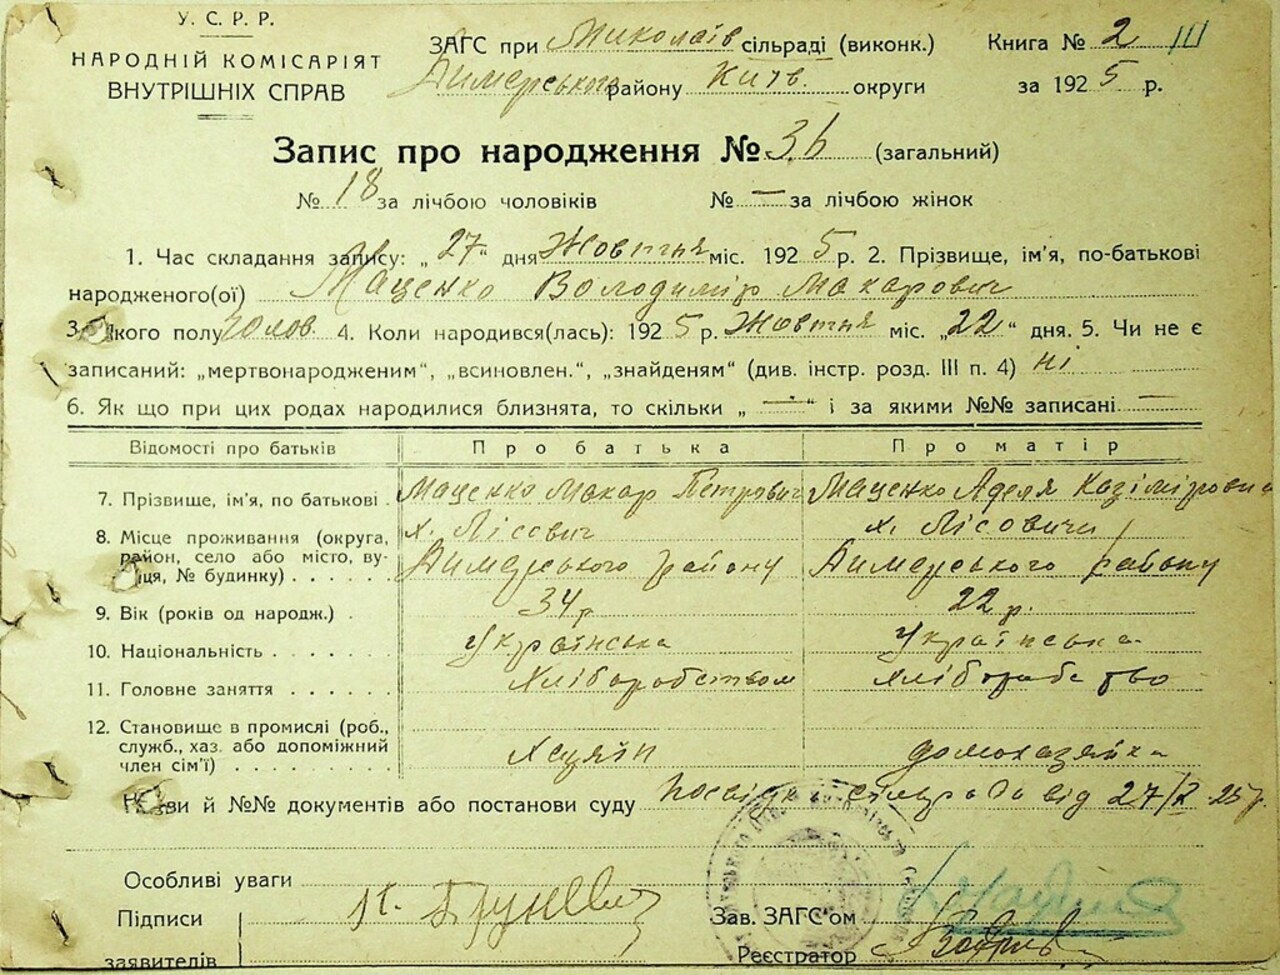 У. С. Р. Р.
НАРОДНІЙ КОМІСАРІЯТ
ВНУТРІШНІХ СПРАВ
ЗАГС при Миколаїв сільраді (виконк.)
Димерського району Київ. округи
Книга № 2 III
за 1925 р.
Запис про народження № 36 (загальний)
№ 18 за лічбою чоловіків № — за лічбою жінок
1. Час складання запису: „27" дня Жовтня міс. 1925 р. 2. Прізвище, ім'я, по-батькові
народженого(ої) Маценко Володимір Макарович
3. Якого полу Чолов. 4. Коли народився(лась): 1925 р. Жовтня міс. „22" дня. 5. Чи не є
записаний: „мертвонародженим", „всиновлен.", „знайденям" (див. інстр. розд. III п. 4) ні
6. Як що при цих родах народилися близнята, то скільки „—" і за якими №№ записані —
Відомості про батьків Про батька Про матір
7. Прізвище, ім'я, по батькові . Маценко Макар Петрович Маценко Аделя Казіміровна
8. Місце проживання (округа, х. Лісович х. Лісовичи
район, село або місто, ву-
лиця, № будинку) . . . . . . Димерського району Димерського району
9. Вік (років од народж.) . 34 р 22 р.
10. Національність . . . . . . Українська Українська
11. Головне заняття . . . . . . Хліборобством хліборобство
12. Становище в промислі (роб.,
служб., хаз. або допоміжний
член сім'ї) . . . . . . . . Хазяїн домохазяйка
Назви й №№ документів або постанови суду Посвідка сільради від 27/X 25 р.
Особливі уваги
Підписи
заявителів
Зав. ЗАГС'ом
Реєстратор